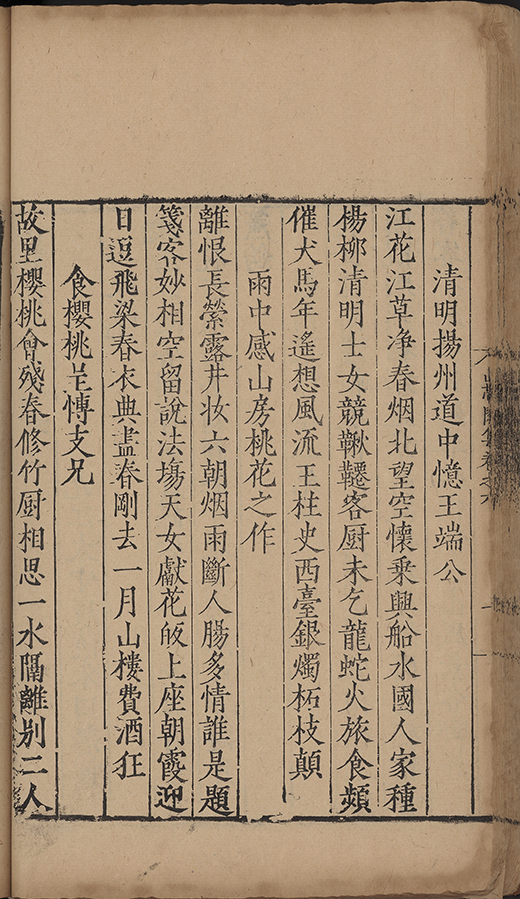 清明揚州道中憶王端公
江花江草净春烟北望空懷乗興船水國人家種
楊栁清明士女競鞦韆客厨未乞龍蛇火旅食頻
催犬馬年遙想風流王柱史西臺銀燭柘枝顛
雨中感山房桃花之作
離恨長縈露井妆六朝烟雨斷人腸多情誰是題
箋客妙相空留說法塲天女獻花皈上座朝霞迎
日逗飛梁春衣典盡春剛去一月山樓費酒狂
食櫻桃呈慱支兄
故里櫻桃會殘春修竹厨相思一水隔離别二人